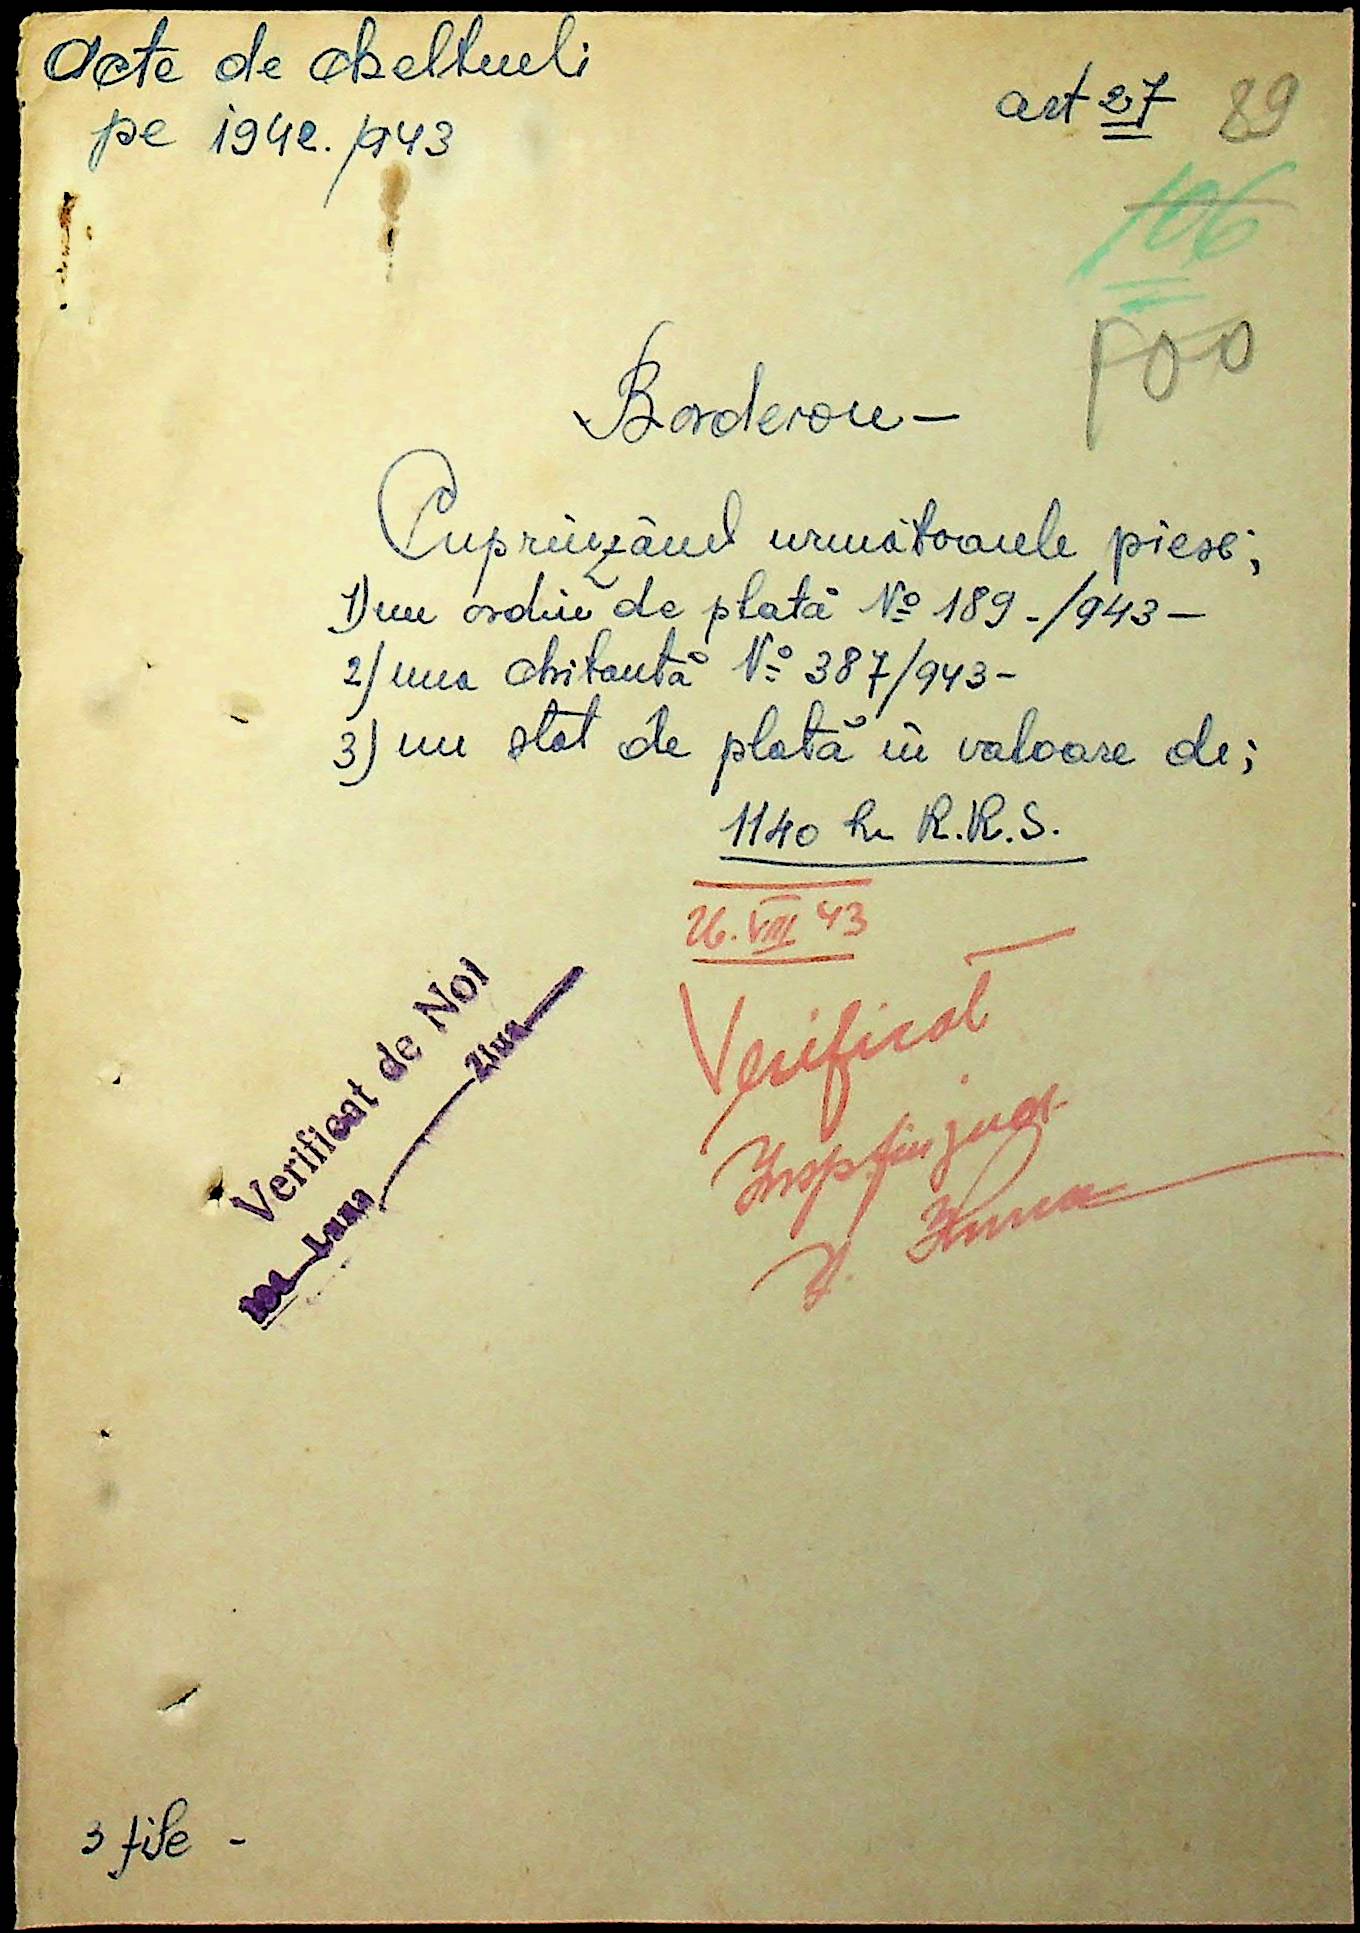 Acte de cheltueli
pe 1942./943
art 27 89
106
100
Borderou —
Cuprinzând urmatoarele piese;
1) un ordin de plată No 189 -/943 —
2) una chitantă No 387/943 -
3) un stat de plată în valoare de;
1140 lei R.K.K.S.
26.VIII 43
Verificat
Insp. fin. jud.
Verificat de Noi
194 Luna Ziua
3 file -